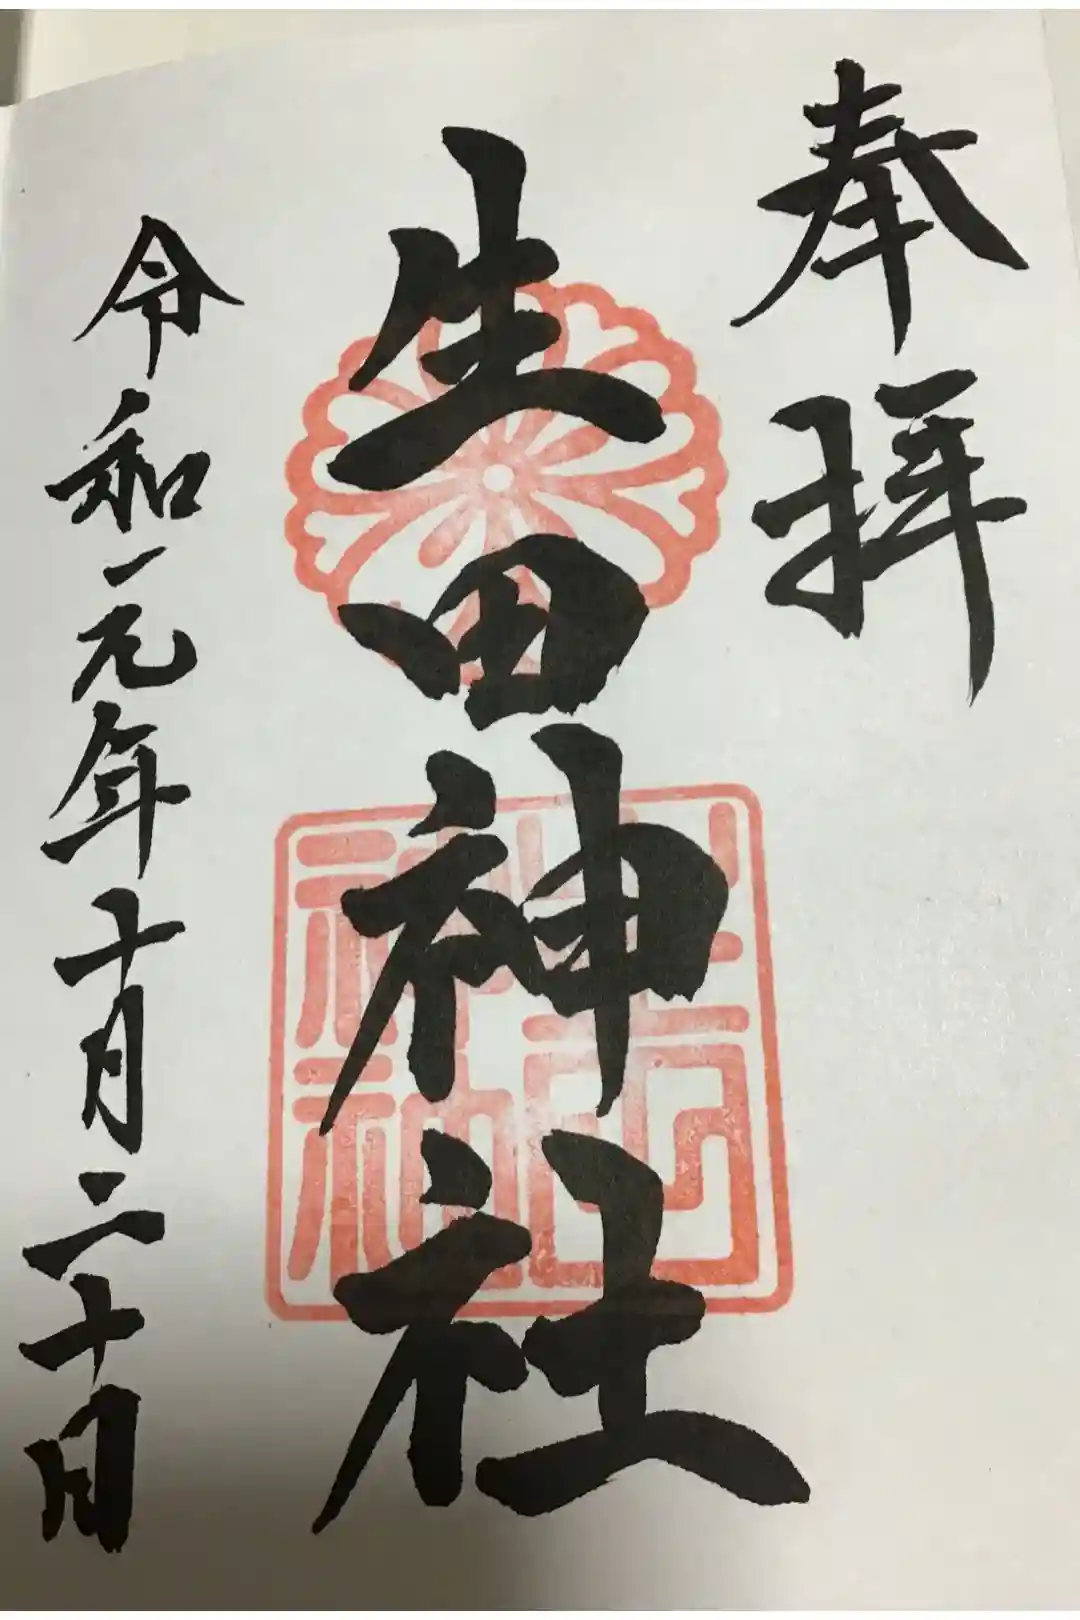 奉拝
生田神社
令和元年十月二十日
生田神社